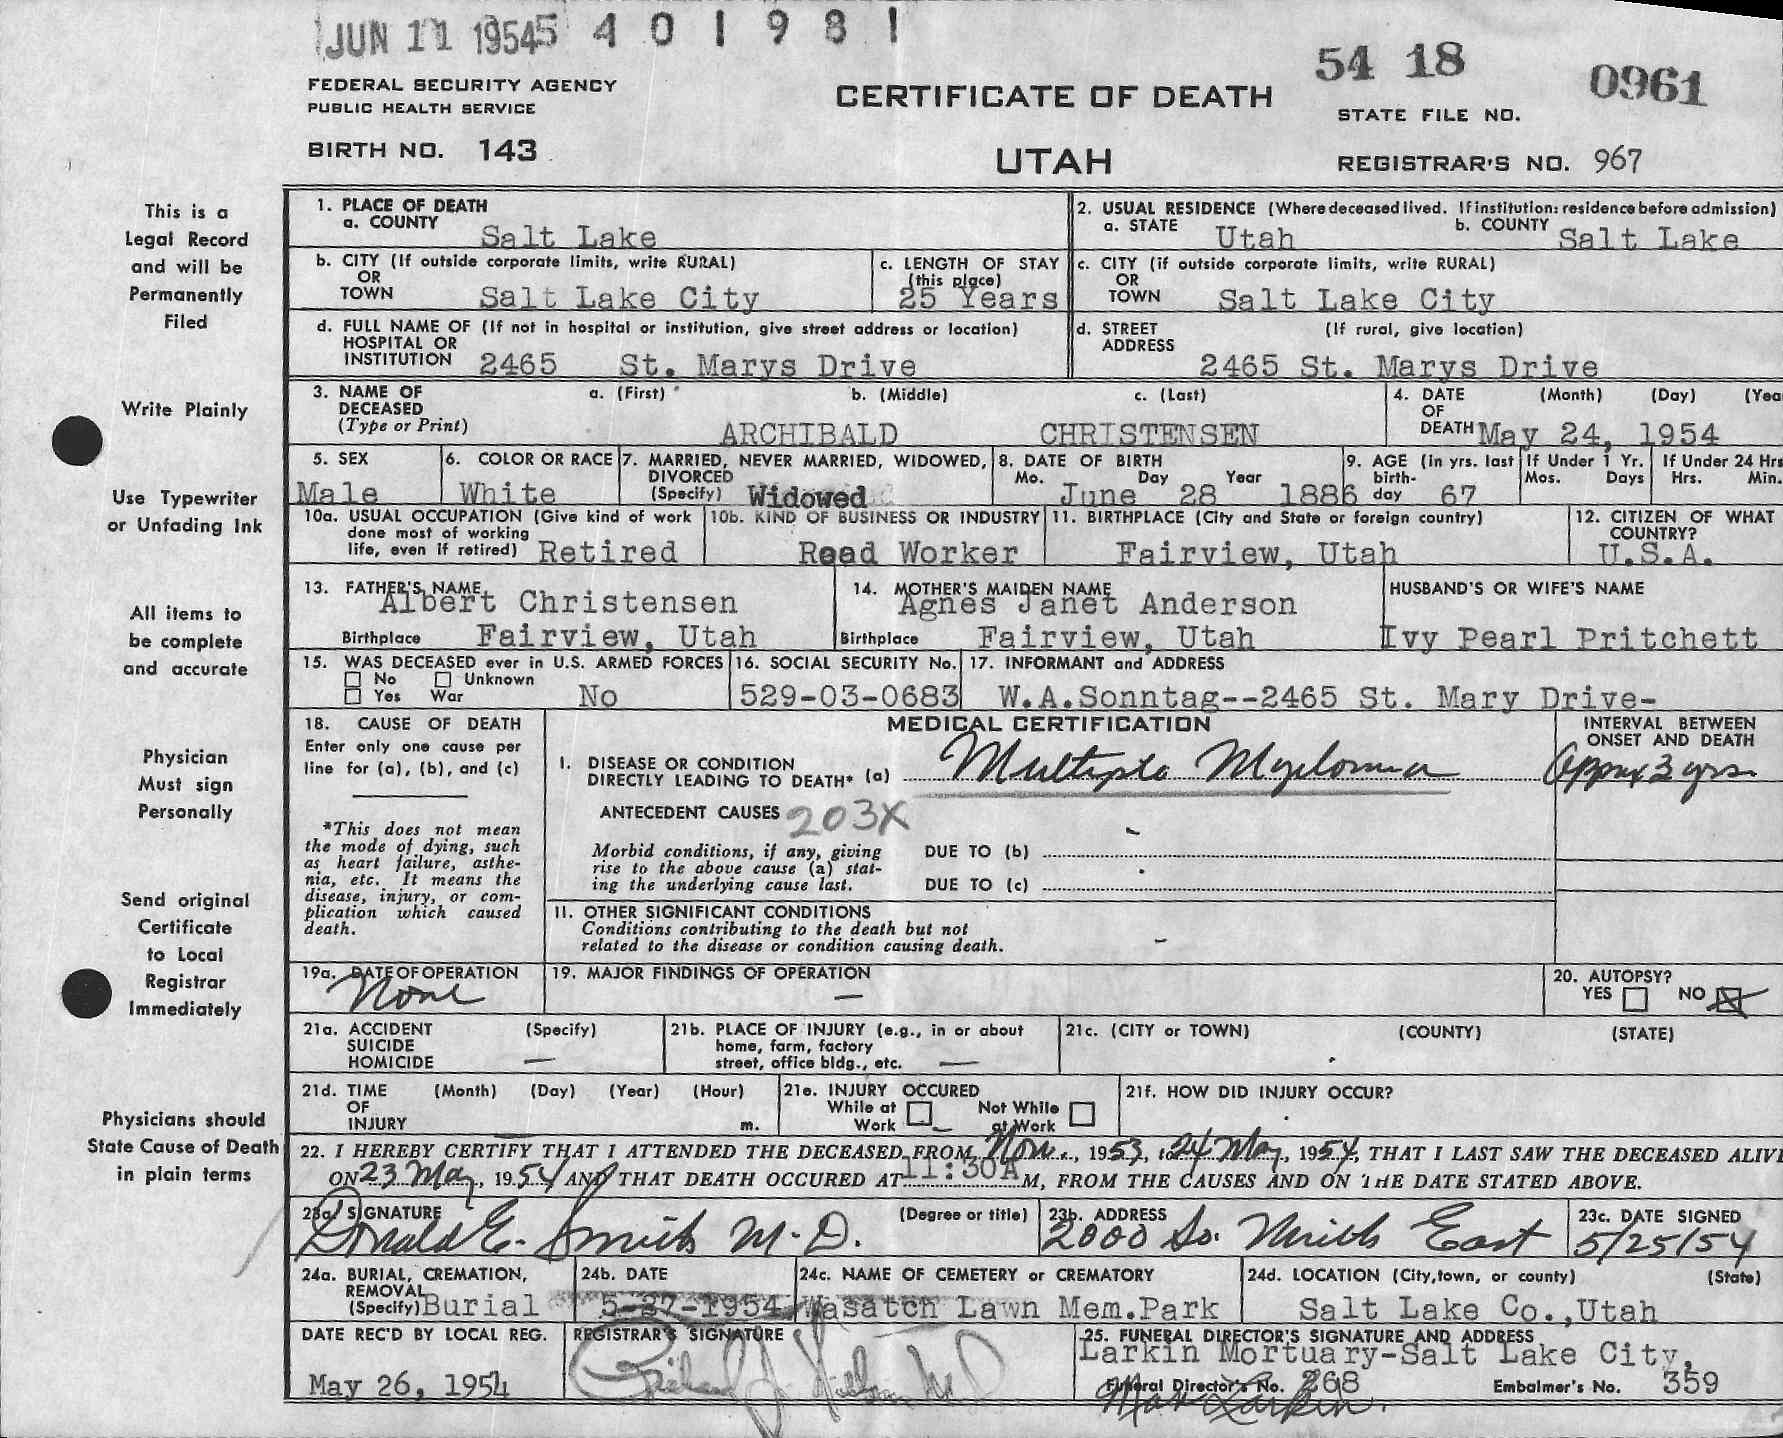 JUN 11 1954 5 4 0 1 9 8 1
54 18 0961
FEDERAL SECURITY AGENCY
PUBLIC HEALTH SERVICE
CERTIFICATE OF DEATH
STATE FILE NO.
BIRTH NO. 143
UTAH
REGISTRAR'S NO. 967
This is a
Legal Record
and will be
Permanently
Filed
Write Plainly
Use Typewriter
or Unfading Ink
All items to
be complete
and accurate
Physician
Must sign
Personally
Send original
Certificate
to Local
Registrar
Immediately
Physicians should
State Cause of Death
in plain terms
1. PLACE OF DEATH
a. COUNTY Salt Lake
2. USUAL RESIDENCE (Where deceased lived. If institution: residence before admission)
a. STATE Utah b. COUNTY Salt Lake
b. CITY (If outside corporate limits, write RURAL)
OR
TOWN Salt Lake City
c. LENGTH OF STAY
(this place)
25 Years
c. CITY (if outside corporate limits, write RURAL)
OR
TOWN Salt Lake City
d. FULL NAME OF (If not in hospital or institution, give street address or location)
HOSPITAL OR
INSTITUTION 2465 St. Marys Drive
d. STREET (If rural, give location)
ADDRESS
2465 St. Marys Drive
3. NAME OF a. (First) b. (Middle) c. (Last)
DECEASED
(Type or Print) ARCHIBALD CHRISTENSEN
4. DATE (Month) (Day) (Yea
OF
DEATH May 24, 1954
5. SEX
Male
6. COLOR OR RACE
White
7. MARRIED, NEVER MARRIED, WIDOWED,
DIVORCED
(Specify) Widowed
8. DATE OF BIRTH
Mo. Day Year
June 28 1886
9. AGE (In yrs. last
birth-
day 67
If Under 1 Yr.
Mos. Days
If Under 24 Hrs
Hrs. Min.
10a. USUAL OCCUPATION (Give kind of work
done most of working
life, even if retired) Retired
10b. KIND OF BUSINESS OR INDUSTRY
Road Worker
11. BIRTHPLACE (City and State or foreign country)
Fairview, Utah
12. CITIZEN OF WHAT
COUNTRY?
U.S.A.
13. FATHER'S NAME
Albert Christensen
Birthplace Fairview, Utah
14. MOTHER'S MAIDEN NAME
Agnes Janet Anderson
Birthplace Fairview, Utah
HUSBAND'S OR WIFE'S NAME
Ivy Pearl Pritchett
15. WAS DECEASED ever in U.S. ARMED FORCES
No Unknown
Yes War No
16. SOCIAL SECURITY No.
529-03-0683
17. INFORMANT and ADDRESS
W.A.Sonntag--2465 St. Mary Drive-
18. CAUSE OF DEATH
Enter only one cause per
line for (a), (b), and (c)
*This does not mean
the mode of dying, such
as heart failure, asthe-
nia, etc. It means the
disease, injury, or com-
plication which caused
death.
MEDICAL CERTIFICATION
I. DISEASE OR CONDITION
DIRECTLY LEADING TO DEATH* (a) Multiple Myeloma
INTERVAL BETWEEN
ONSET AND DEATH
Approx 3 yrs.
ANTECEDENT CAUSES 203X
Morbid conditions, if any, giving
rise to the above cause (a) stat-
ing the underlying cause last.
DUE TO (b)
DUE TO (c)
II. OTHER SIGNIFICANT CONDITIONS
Conditions contributing to the death but not
related to the disease or condition causing death. -
19a. DATE OF OPERATION
None
19. MAJOR FINDINGS OF OPERATION
-
20. AUTOPSY?
YES NO
21a. ACCIDENT (Specify)
SUICIDE
HOMICIDE -
21b. PLACE OF INJURY (e.g., in or about
home, farm, factory
street, office bldg., etc. -
21c. (CITY or TOWN) (COUNTY) (STATE)
21d. TIME (Month) (Day) (Year) (Hour)
OF
INJURY m.
21e. INJURY OCCURED
While at Work Not While at Work
21f. HOW DID INJURY OCCUR?
22. I HEREBY CERTIFY THAT I ATTENDED THE DECEASED FROM Nov., 1953, to 24 May, 1954, THAT I LAST SAW THE DECEASED ALIVE
ON 23 May, 1954 AND THAT DEATH OCCURED AT 11:30A M, FROM THE CAUSES AND ON THE DATE STATED ABOVE.
23a. SIGNATURE (Degree or title)
Donald E. Smith M.D.
23b. ADDRESS
2000 So. Ninth East
23c. DATE SIGNED
5/25/54
24a. BURIAL, CREMATION,
REMOVAL
(Specify) Burial
24b. DATE
5-27-1954
24c. NAME OF CEMETERY or CREMATORY
Wasatch Lawn Mem.Park
24d. LOCATION (City, town, or county) (State)
Salt Lake Co.,Utah
DATE REC'D BY LOCAL REG.
May 26, 1954
REGISTRAR'S SIGNATURE
25. FUNERAL DIRECTOR'S SIGNATURE AND ADDRESS
Larkin Mortuary-Salt Lake City,
Funeral Director's No. 268 Embalmer's No. 359
Larkin.